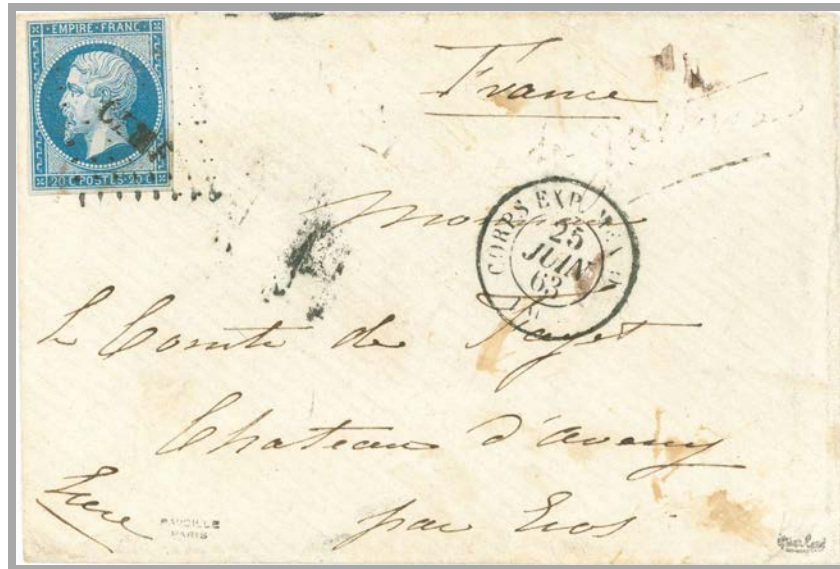 EMPIRE·FRANC·
20 C POSTES 20 C
France
CORPS EXP.
25
JUIN
63
Monsieur
Le Comte de
Chateau d'aveny
par Ecos
Eure
PAVOILLE
PARIS